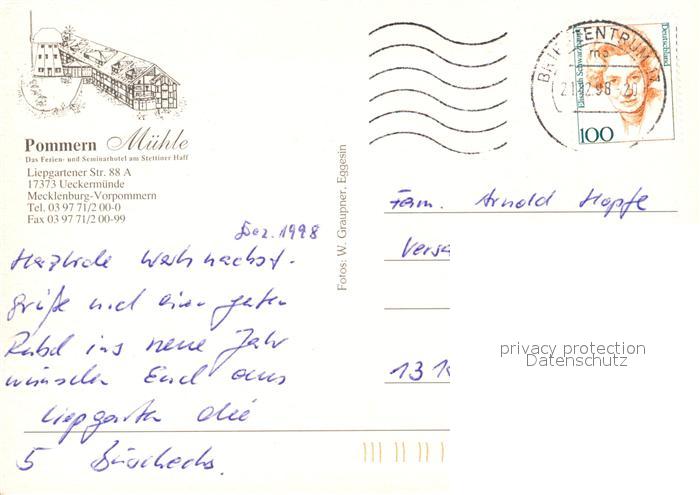 Pommern Mühle
Das Ferien- und Seminarhotel am Stettiner Haff
Liepgartener Str. 88 A
17373 Ueckermünde
Mecklenburg-Vorpommern
Tel. 03 97 71/2 00-0
Fax 03 97 71/2 00-99
Dez. 1998
Herzliche Weihnachts-
grüße und einen guten
Rutsch ins neue Jahr
wünschen Euch aus
Liepgarten die
5
Fotos: W. Graupner, Eggesin
BRIEFZENTRUM 17
ma
21.12.98-20
Deutschland
Elisabeth Schwarzhaupt
100
Fam. Arnold Hopfe
Versa
131
privacy protection
Datenschutz